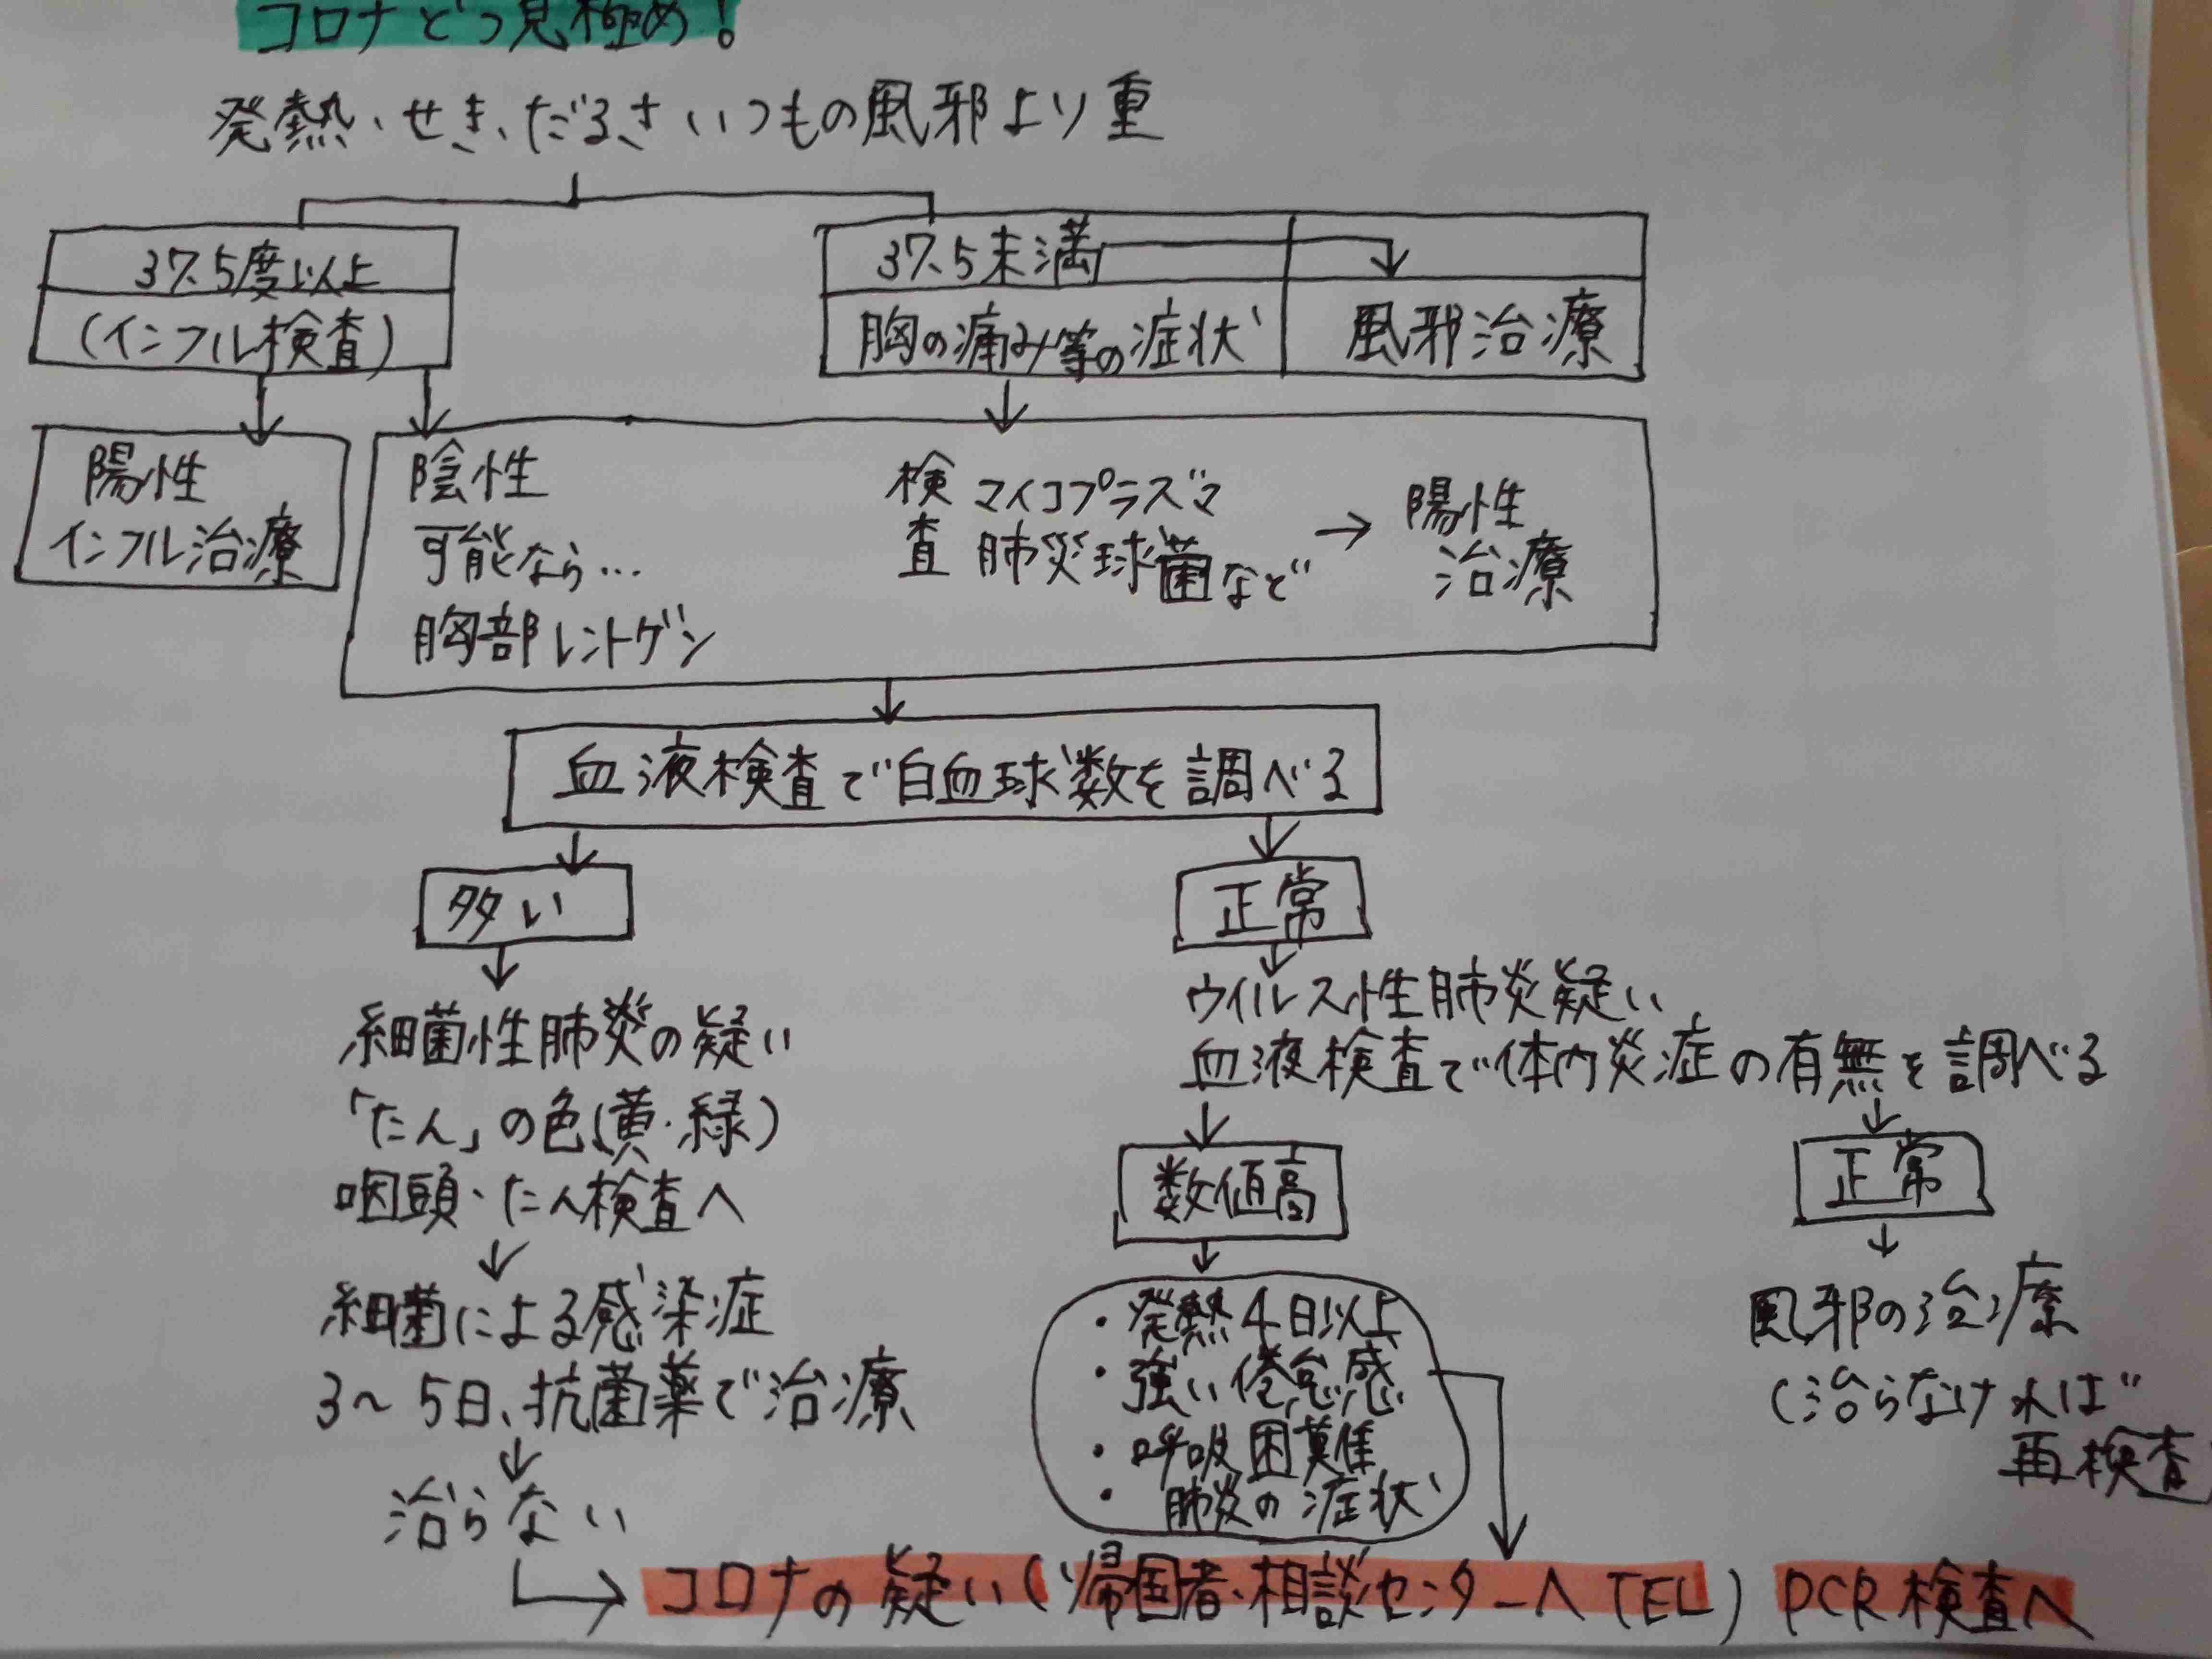 コロナどう見極め!
発熱、せき、だるさいつもの風邪より重
37.5度以上
(インフル検査)
37.5未満
胸の痛み等の症状
風邪治療
陽性
インフル治療
陰性
可能なら…
胸部レントゲン
検査
マイコプラズマ
肺炎球菌など
→ 陽性
治療
血液検査で白血球数を調べる
多い
細菌性肺炎の疑い
「たん」の色(黄・緑)
咽頭・たん検査へ
細菌による感染症
3〜5日、抗菌薬で治療
治らない
正常
ウイルス性肺炎疑い
血液検査で体内炎症の有無を調べる
数値高
・発熱4日以上
・強い倦怠感
・呼吸困難
・肺炎の症状
正常
風邪の治療
(治らなければ
再検査)
コロナの疑い(帰国者・相談センターへTEL) PCR検査へ